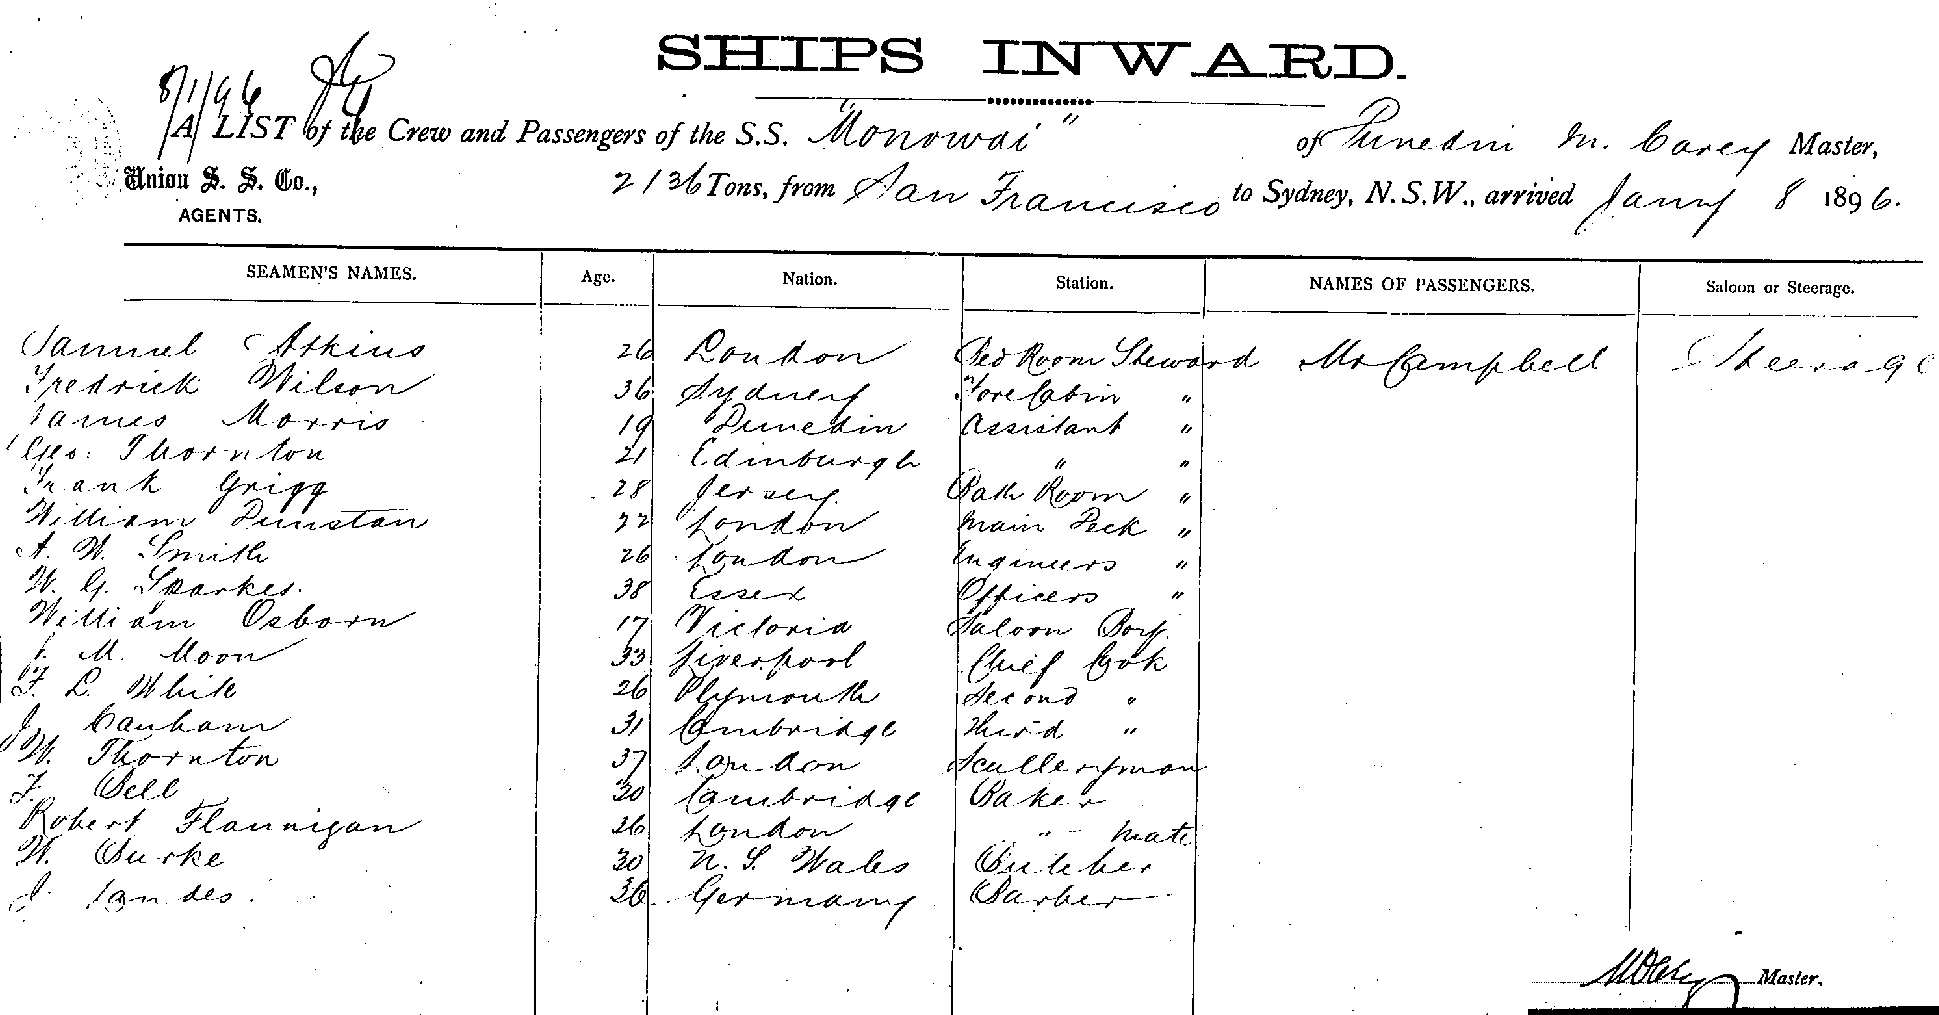 SHIPS INWARD.
8/1/96
A LIST of the Crew and Passengers of the S.S. "Monowai" of Dunedin M. Carey Master,
Union S. S. Co., 2136 Tons, from San Francisco to Sydney, N.S.W., arrived Jany 8 1896.
AGENTS.
SEAMEN'S NAMES. Age. Nation. Station. NAMES OF PASSENGERS. Saloon or Steerage.
Samuel Atkins 26 London Bed Room Steward Mr Campbell Steerage
Fredrick Wilson 36 Sydney Fore Cabin "
James Morris 19 Dunedin Assistant "
Geo. Thornton 21 Edinburgh " "
Frank Grigg 28 Jersey. Bath Room "
William Dunstan 22 London Main Deck "
A. W. Smith 26 London Engineers "
W. G. Sparkes. 38 Essex Officers "
William Osborn 17 Victoria Saloon Boy.
M. Moon 33 Liverpool Chief Cook
F. L. White 26 Plymouth Second "
J. Canham 31 Cambridge Third "
W. Thornton 37 London Sculleryman
F. Bell 20 Cambridge Baker
Robert Flannigan 26 London " Mate
W. Burke 30 N. S. Wales Butcher
J. 36 Germany Barber
Master.